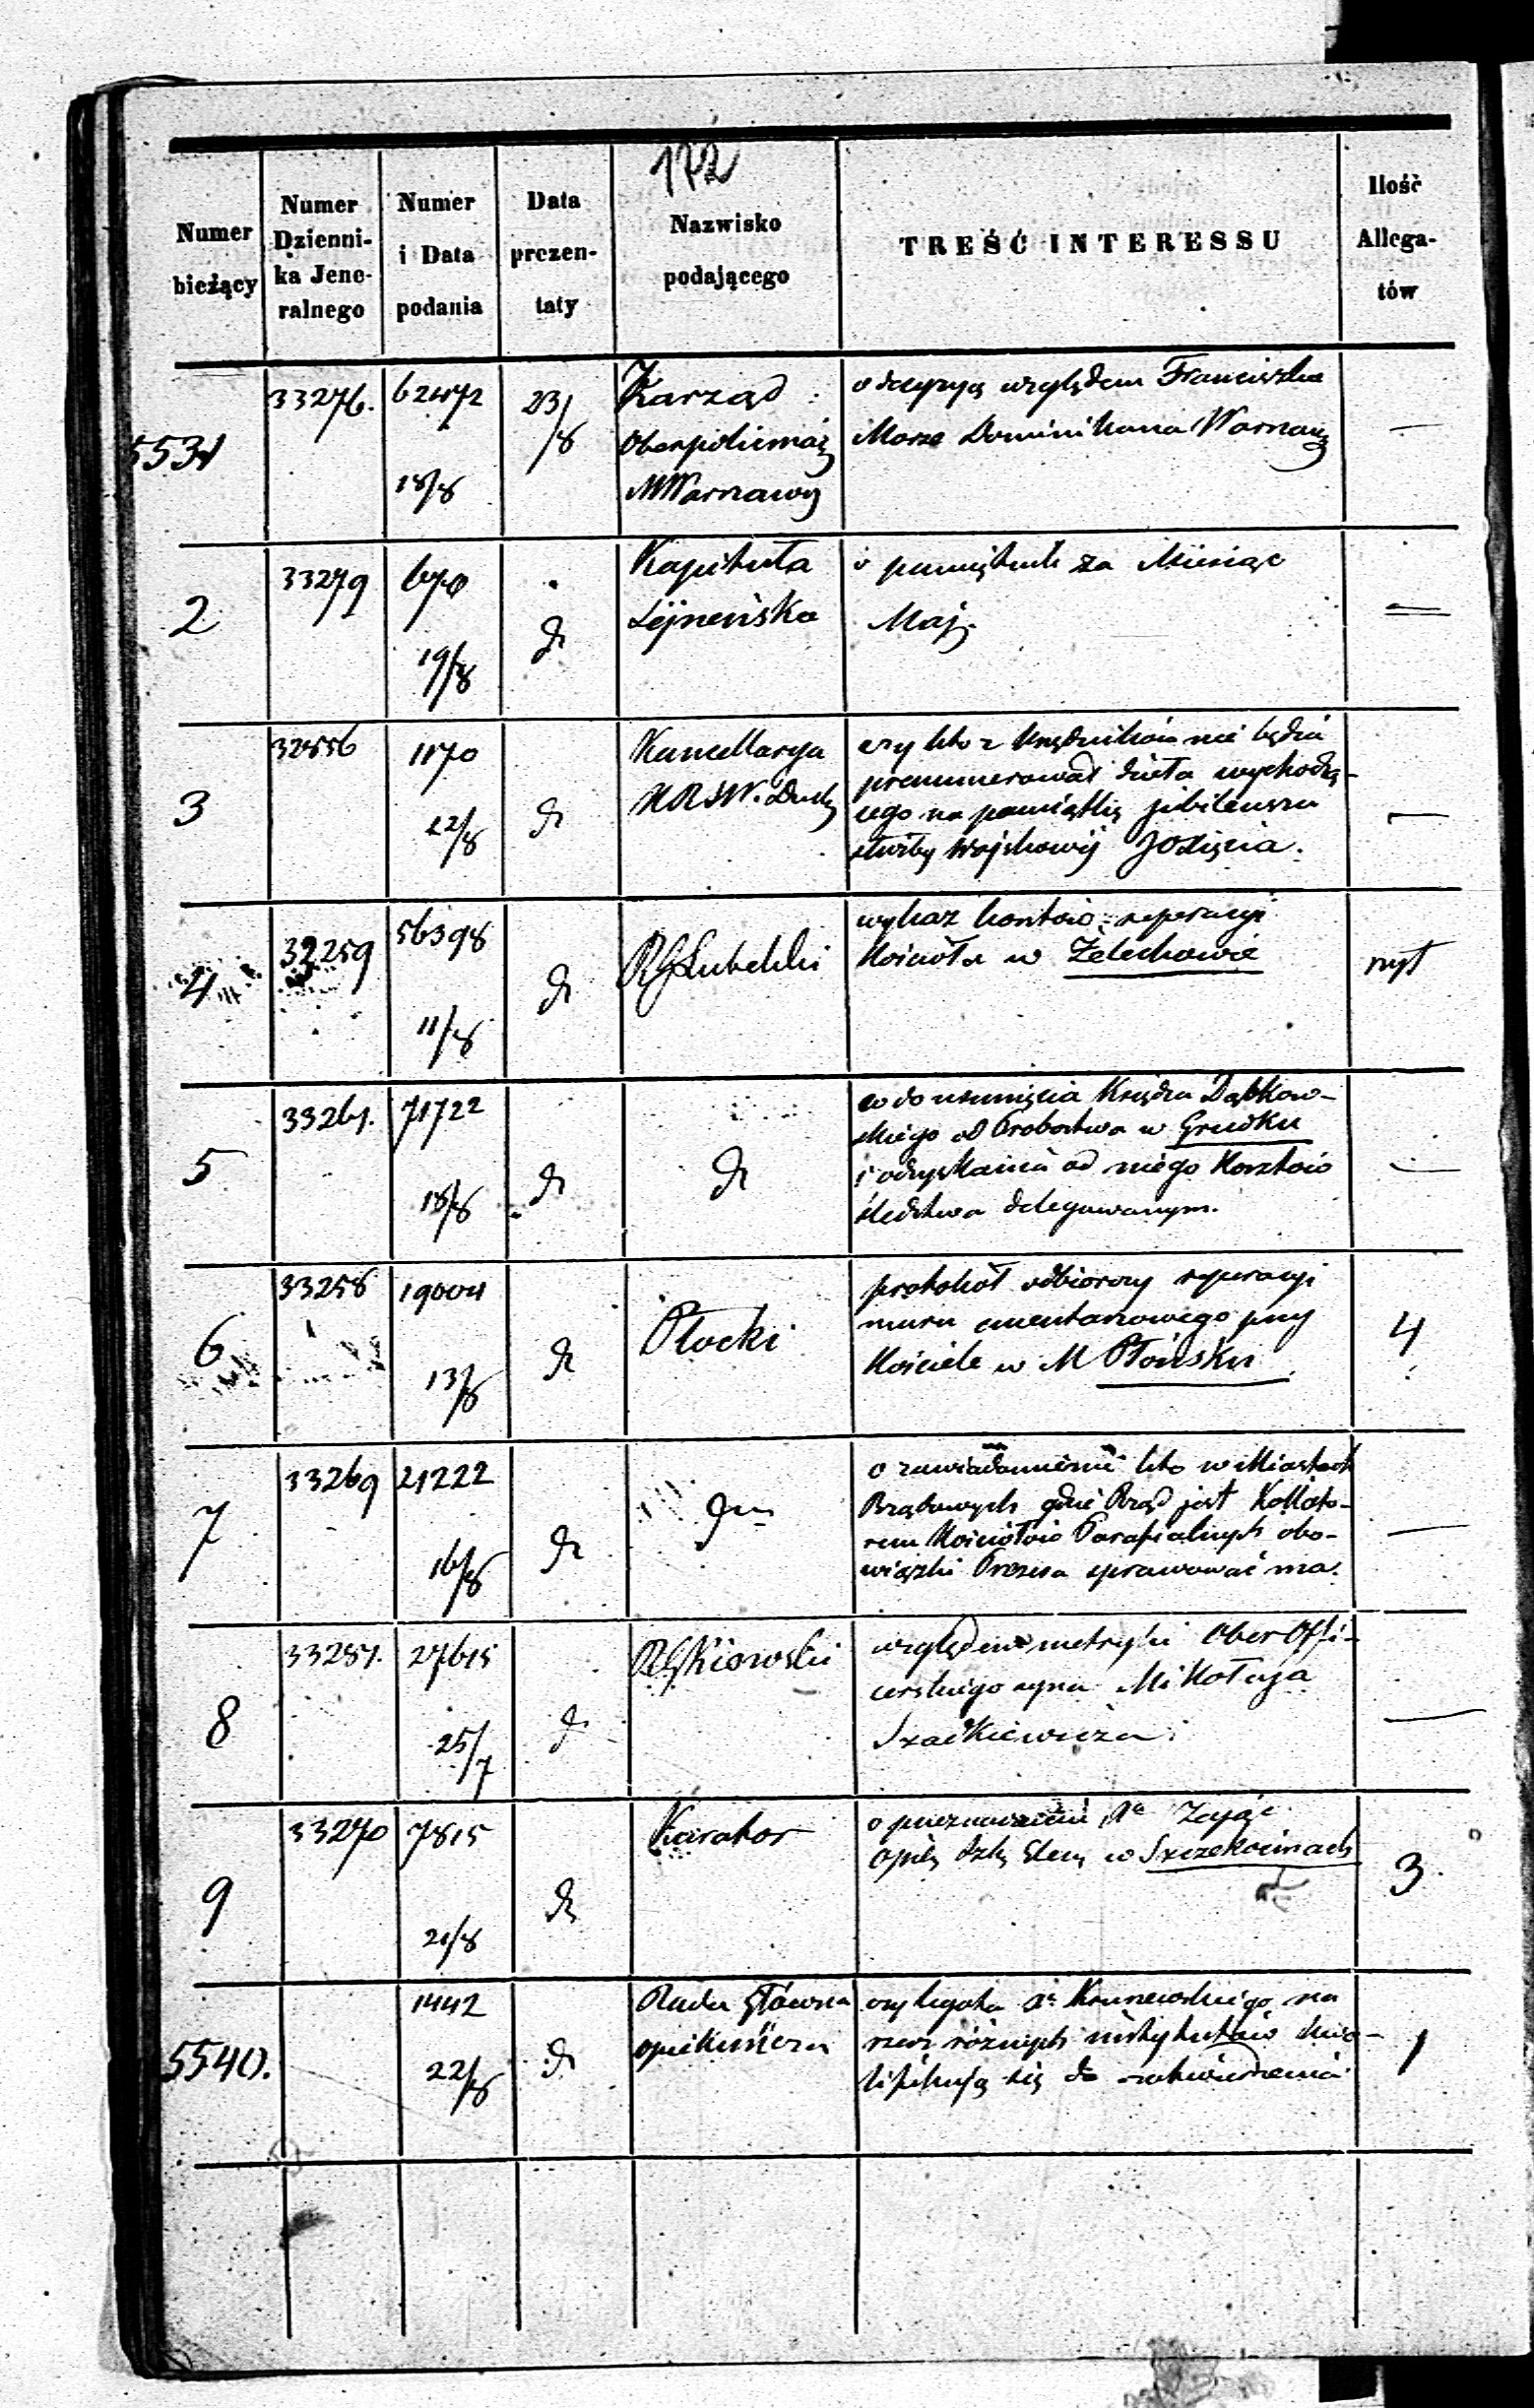 172
Numer bieżący
Numer Dzienni-ka Jene-ralnego
Numer i Data podania
Data prezen-taty
Nazwisko podającego
TREŚĆ INTERESSU
Ilość Allega-tów
5531
33276.
62472
18/8
23/8
Zarząd
Oberpolicmaj
M Warszawy
o decyzyą względem Franciszka
Marze Dominikana Warszaw
—
2
33279
670
19/8
dt
Kapituła
Sejneńska
o pamiętnik za Miesiąc
Maj.
=
3
32556
1170
22/8
dt
Kancellarya
KRSW. Duch
czy kto z Urzędników nie będzie
prenumerować dzieła wychodzą-
cego na pamiątkę jubileuszu
służby Wojskowej JOXięcia.
—
4
33259
56398
11/8
dt
RG Lubelski
wykaz kosztów reperacyi
Kościoła w Żelechowie
szyt
5
33261.
71722
18/8
dt
dt
co do usunięcia Księdza Dąbkow-
skiego od Probostwa w Grudku
i odzyskania od niego Kosztów
śledztwa delegowanym.
—
6
33258
19004
13/8
dt
Płocki
protokół odbiorczy reperacyi
muru cmentarzowego przy
Kościele w M Płońsku
4
7
33269
21222
16/8
dt
dt
o zawiadomienie kto w Miastach
Rządowych gdzie Rząd jest Kollato-
rem Kościołów Parafialnych obo-
wiązki Prezesa sprawować ma.
—
8
33257.
27615
25/7
dt
RG Kiowski
względem metryki Ober Offi-
cerskiego syna Mikołaja
—
9
33270
7815
21/8
dt
Kurator
o przeznaczenie Zając
w Szczekocinach
3.
5540.
1442
22/8
dt
Rada główna
opiekuńcza
czy legata na
rzecz różnych instytutów kwa-
lifikują się do zatwierdzenia
1